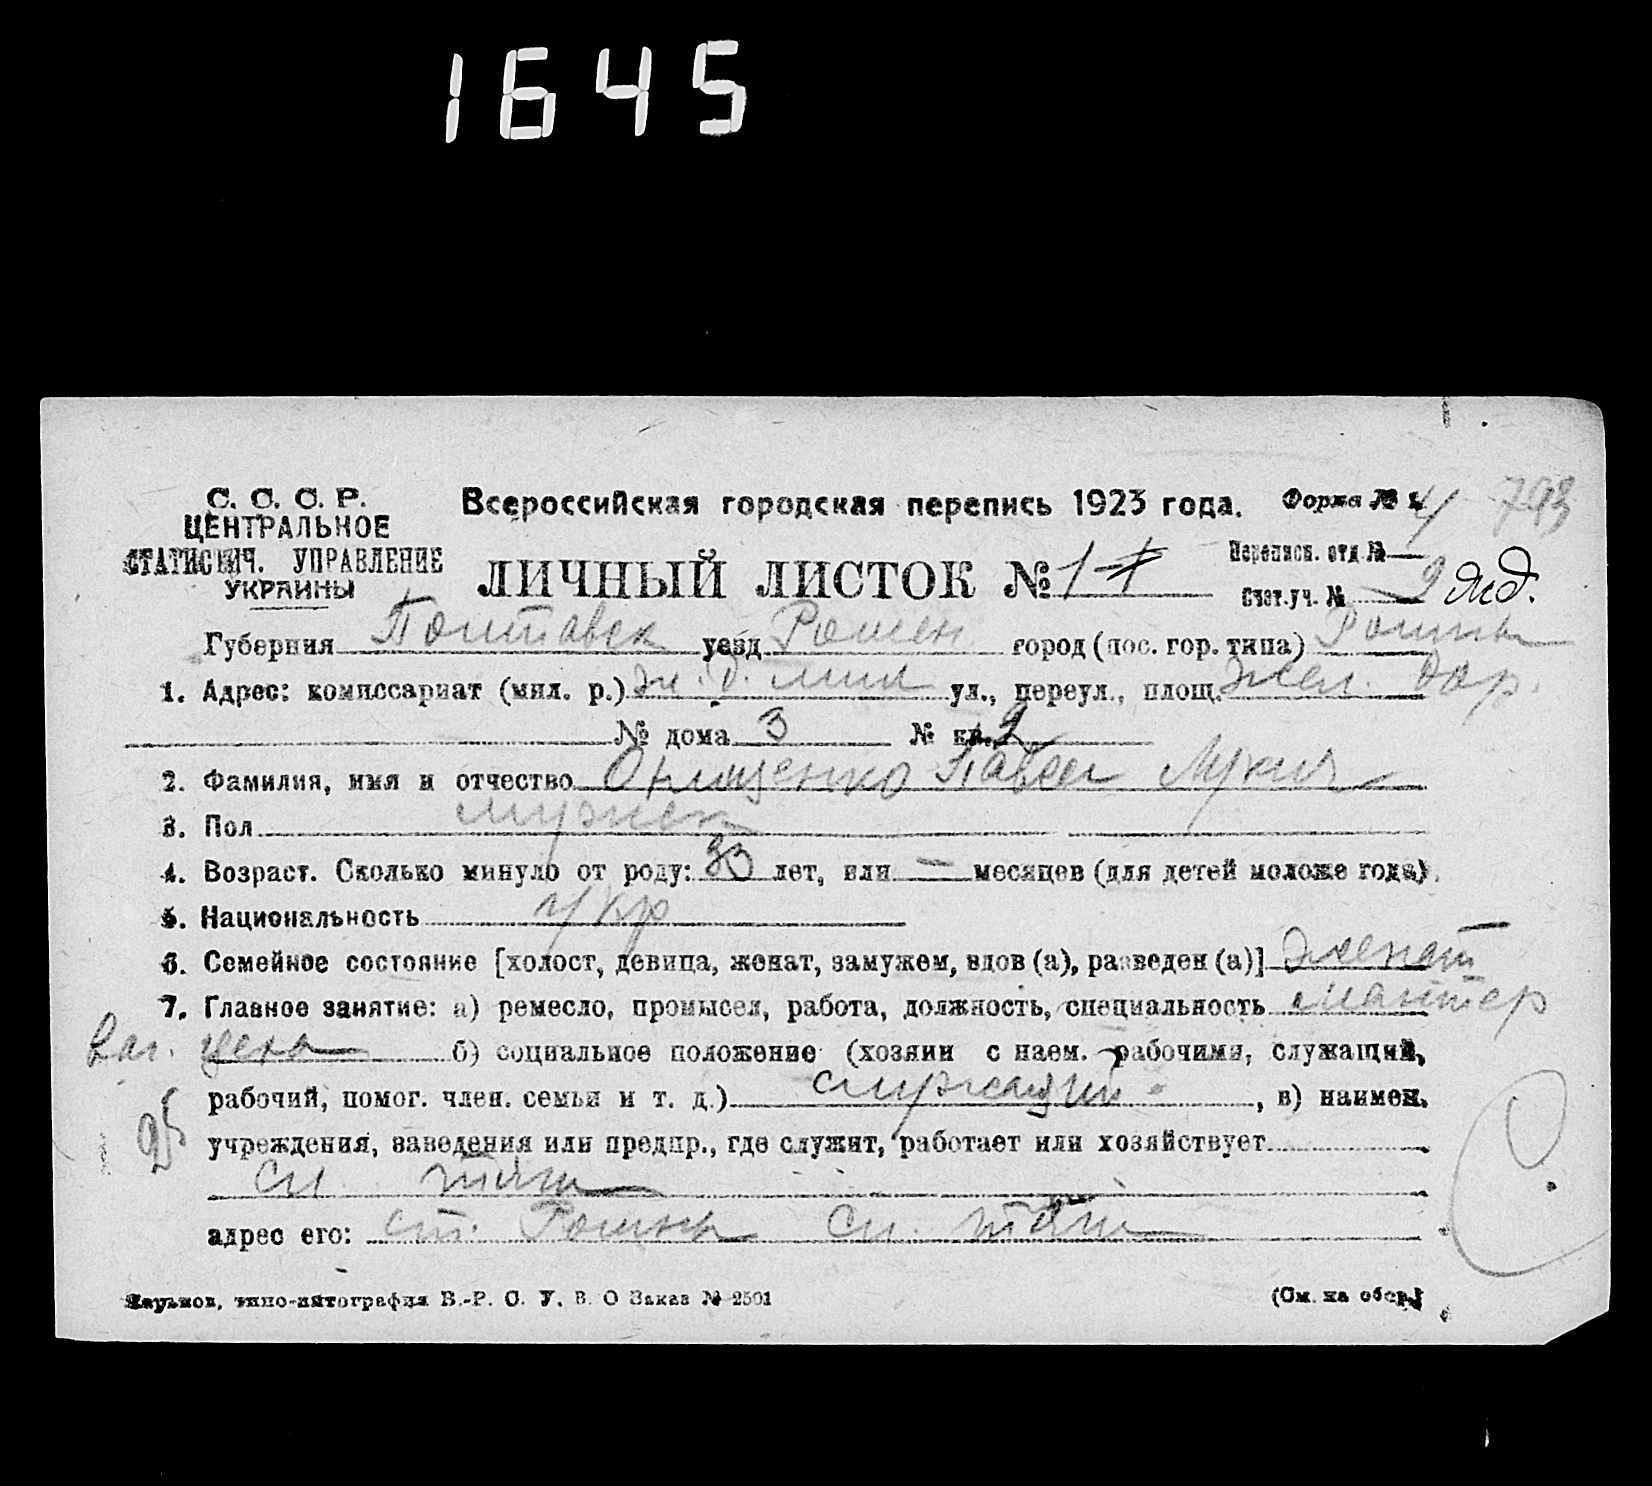 1645
С. С. С. Р.
ЦЕНТРАЛЬНОЕ
СТАТИСТИЧ. УПРАВЛЕНИЕ
УКРАИНЫ
Всероссийская городская перепись 1923 года.
Форма № 1
793
ЛИЧНЫЙ ЛИСТОК № 1
Перепись. отд. №
Счет. уч. № 2 жд.
Губерния Полтавск уезд Ромен город (пос. гор. типа) Ромны
1. Адрес: комиссариат (мил. р.) ж. д. мил ул., переул., площ. Жел. дор.
№ дома 3 № кв. 2
2. Фамилия, имя и отчество Онищенко Павел Лукич
3. Пол мужск
4. Возраст. Сколько минуло от роду: 33 лет, или — месяцев (для детей моложе года).
5. Национальность укр
6. Семейное состояние [холост, девица, женат, замужем, вдов (а), разведен (а)] женат
7. Главное занятие: а) ремесло, промысел, работа, должность, специальность
ваг. цеха б) социальное положение (хозяин с наем. рабочими, служащий,
рабочий, помог. член. семьи и т. д.) служащий, в) наимен.
учреждения, заведения или предпр., где служит, работает или хозяйствует
сл. тяги
адрес его: ст. Ромны сл. тяги
Харьков, типо-литография В.-Р. С. У. В. О Заказ № 2501
(См. на обор.)